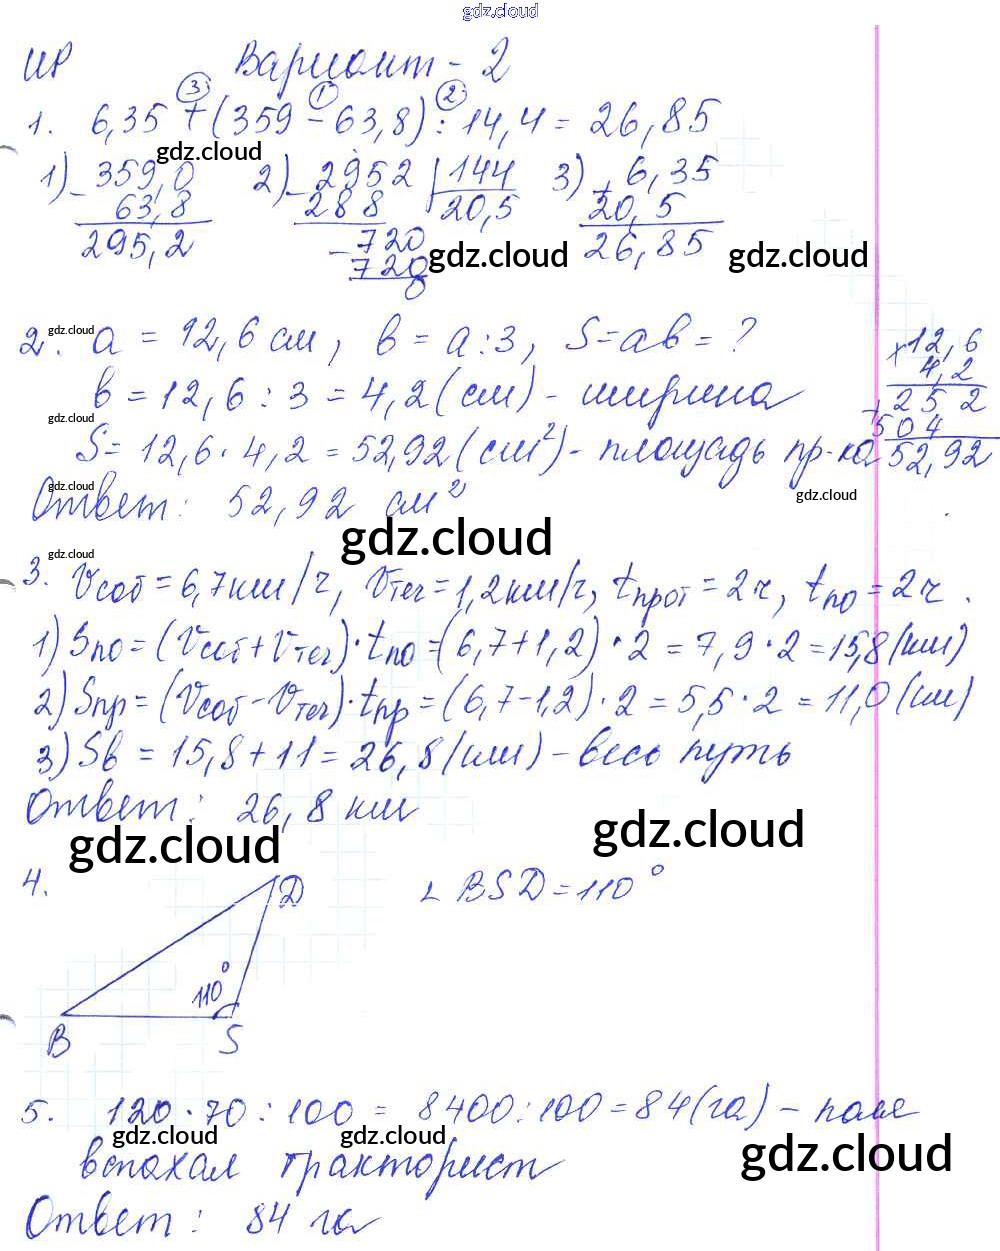 gdz.cloud
Вариант - 2
1. 6,35 + (359 - 63,8) : 14,4 = 26,85
③ ① ②
1) - 359,0
63,8
295,2
2) - 2952 | 144
288 20,5
- 720
720
0
3) + 6,35
20,5
26,85
gdz.cloud
gdz.cloud gdz.cloud
gdz.cloud
2. a = 12,6 см, b = a : 3, S = ab = ?
b = 12,6 : 3 = 4,2 (см) - ширина
gdz.cloud
S = 12,6 · 4,2 = 52,92 (см²) - площадь пр-ка
× 12,6
4,2
+ 252
504
52,92
gdz.cloud
Ответ: 52,92 см²
gdz.cloud
gdz.cloud
gdz.cloud
3. Vсоб = 6,7 км/ч, Vтеч = 1,2 км/ч, tпрот = 2 ч, tпо = 2 ч.
1) Sпо = (Vсоб + Vтеч) · tпо = (6,7 + 1,2) · 2 = 7,9 · 2 = 15,8 (км)
2) Sпр = (Vсоб - Vтеч) · tпр = (6,7 - 1,2) · 2 = 5,5 · 2 = 11,0 (км)
3) Sв = 15,8 + 11 = 26,8 (км) - весь путь
Ответ: 26,8 км
gdz.cloud gdz.cloud
4. ∠ BSD = 110°
D
110°
B S
5. 120 · 70 : 100 = 8400 : 100 = 84 (га) - поле
gdz.cloud gdz.cloud gdz.cloud
вспахал тракторист
Ответ: 84 га